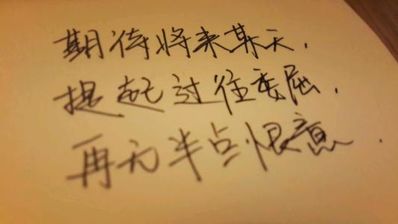 期待将来某天，
提起过往委屈，
再无半点恨意．